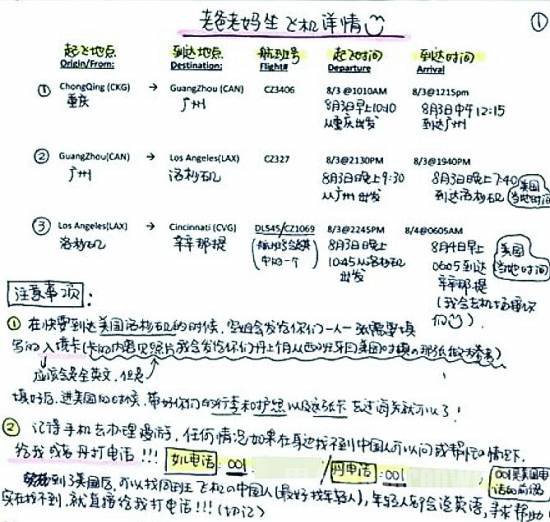 老爸老妈坐飞机详情 ①
起飞地点 到达地点 航班号 起飞时间 到达时间
Origin/From: Destination: Flight# Departure Arrival
① ChongQing (CKG) → GuangZhou (CAN) CZ3406 8/3@1010AM 8/3@1215pm
重庆 广州 8月3日早上10:10 8月3日中午12:15
从重庆出发 到达广州
② GuangZhou(CAN) → Los Angeles(LAX) CZ327 8/3@2130PM 8/3@1940PM
广州 洛杉矶 8月3日晚上9:30 8月3日晚上7:40 美国
从广州出发 到达洛杉矶 当地时间
③ Los Angeles(LAX) → Cincinnati (CVG) DL545/CZ1069 8/3@2245PM 8/4@0605AM
洛杉矶 辛辛那提 8月3日晚上 8月4日早上 美国
中的一个) 10:45从洛杉矶 0605到达 当地时间
出发 辛辛那提
(我会去机场接你
们)
注意事项:
① 在快要到达美国洛杉矶的时候,空姐会发给你们一人一张需要填
写的入境卡(卡的内容见照片,我会发给你们上个月从西班牙回美国时填的那张做参考)
应该会是全英文,但是
填好后,进美国的时候,带好你们的行李和护照以及这张卡去过海关就可以了!
② 记得手机去办理漫游,任何情况如果在身边找不到中国人可以问或帮忙的情况下,
给我或者丹打电话!!! 女儿电话:001 丹电话:001 001是美国电话的前缀
到了美国后,可以找同班飞机的中国人(最好找年轻人),年轻人都会说英语,寻求帮助
实在找不到,就直接给我打电话!!!(切记)